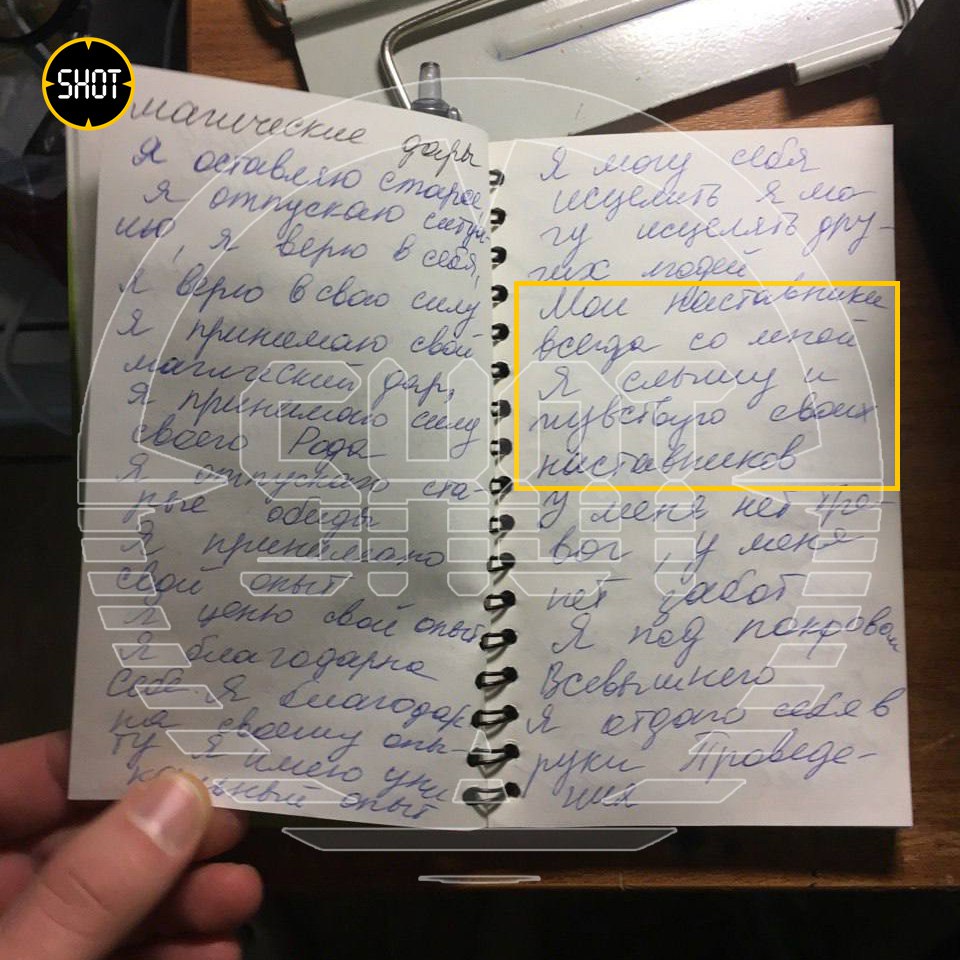 SHOT
магические дары
Я оставляю старое
Я отпускаю ситуа-
цию, я верю в себя,
я верю в свою силу
Я принимаю свой
магический дар,
Я принимаю силу
своего Рода
Я отпускаю ста-
рые обиды
Я принимаю
свой опыт
Я ценю свой опыт
Я благодарна
себе. Я благодар
на своему опы-
ту Я имею уни
кальный опыт
Я могу себя
исцелить Я мо-
гу исцелять дру-
гих людей
Мои наставники
всегда со мной
Я слышу и
чувствую своих
наставников
У меня нет тре-
вог, у меня
нет забот
Я под покровом
Всевышнего
Я отдаю себя в
руки Проведе-
ния
SHOT